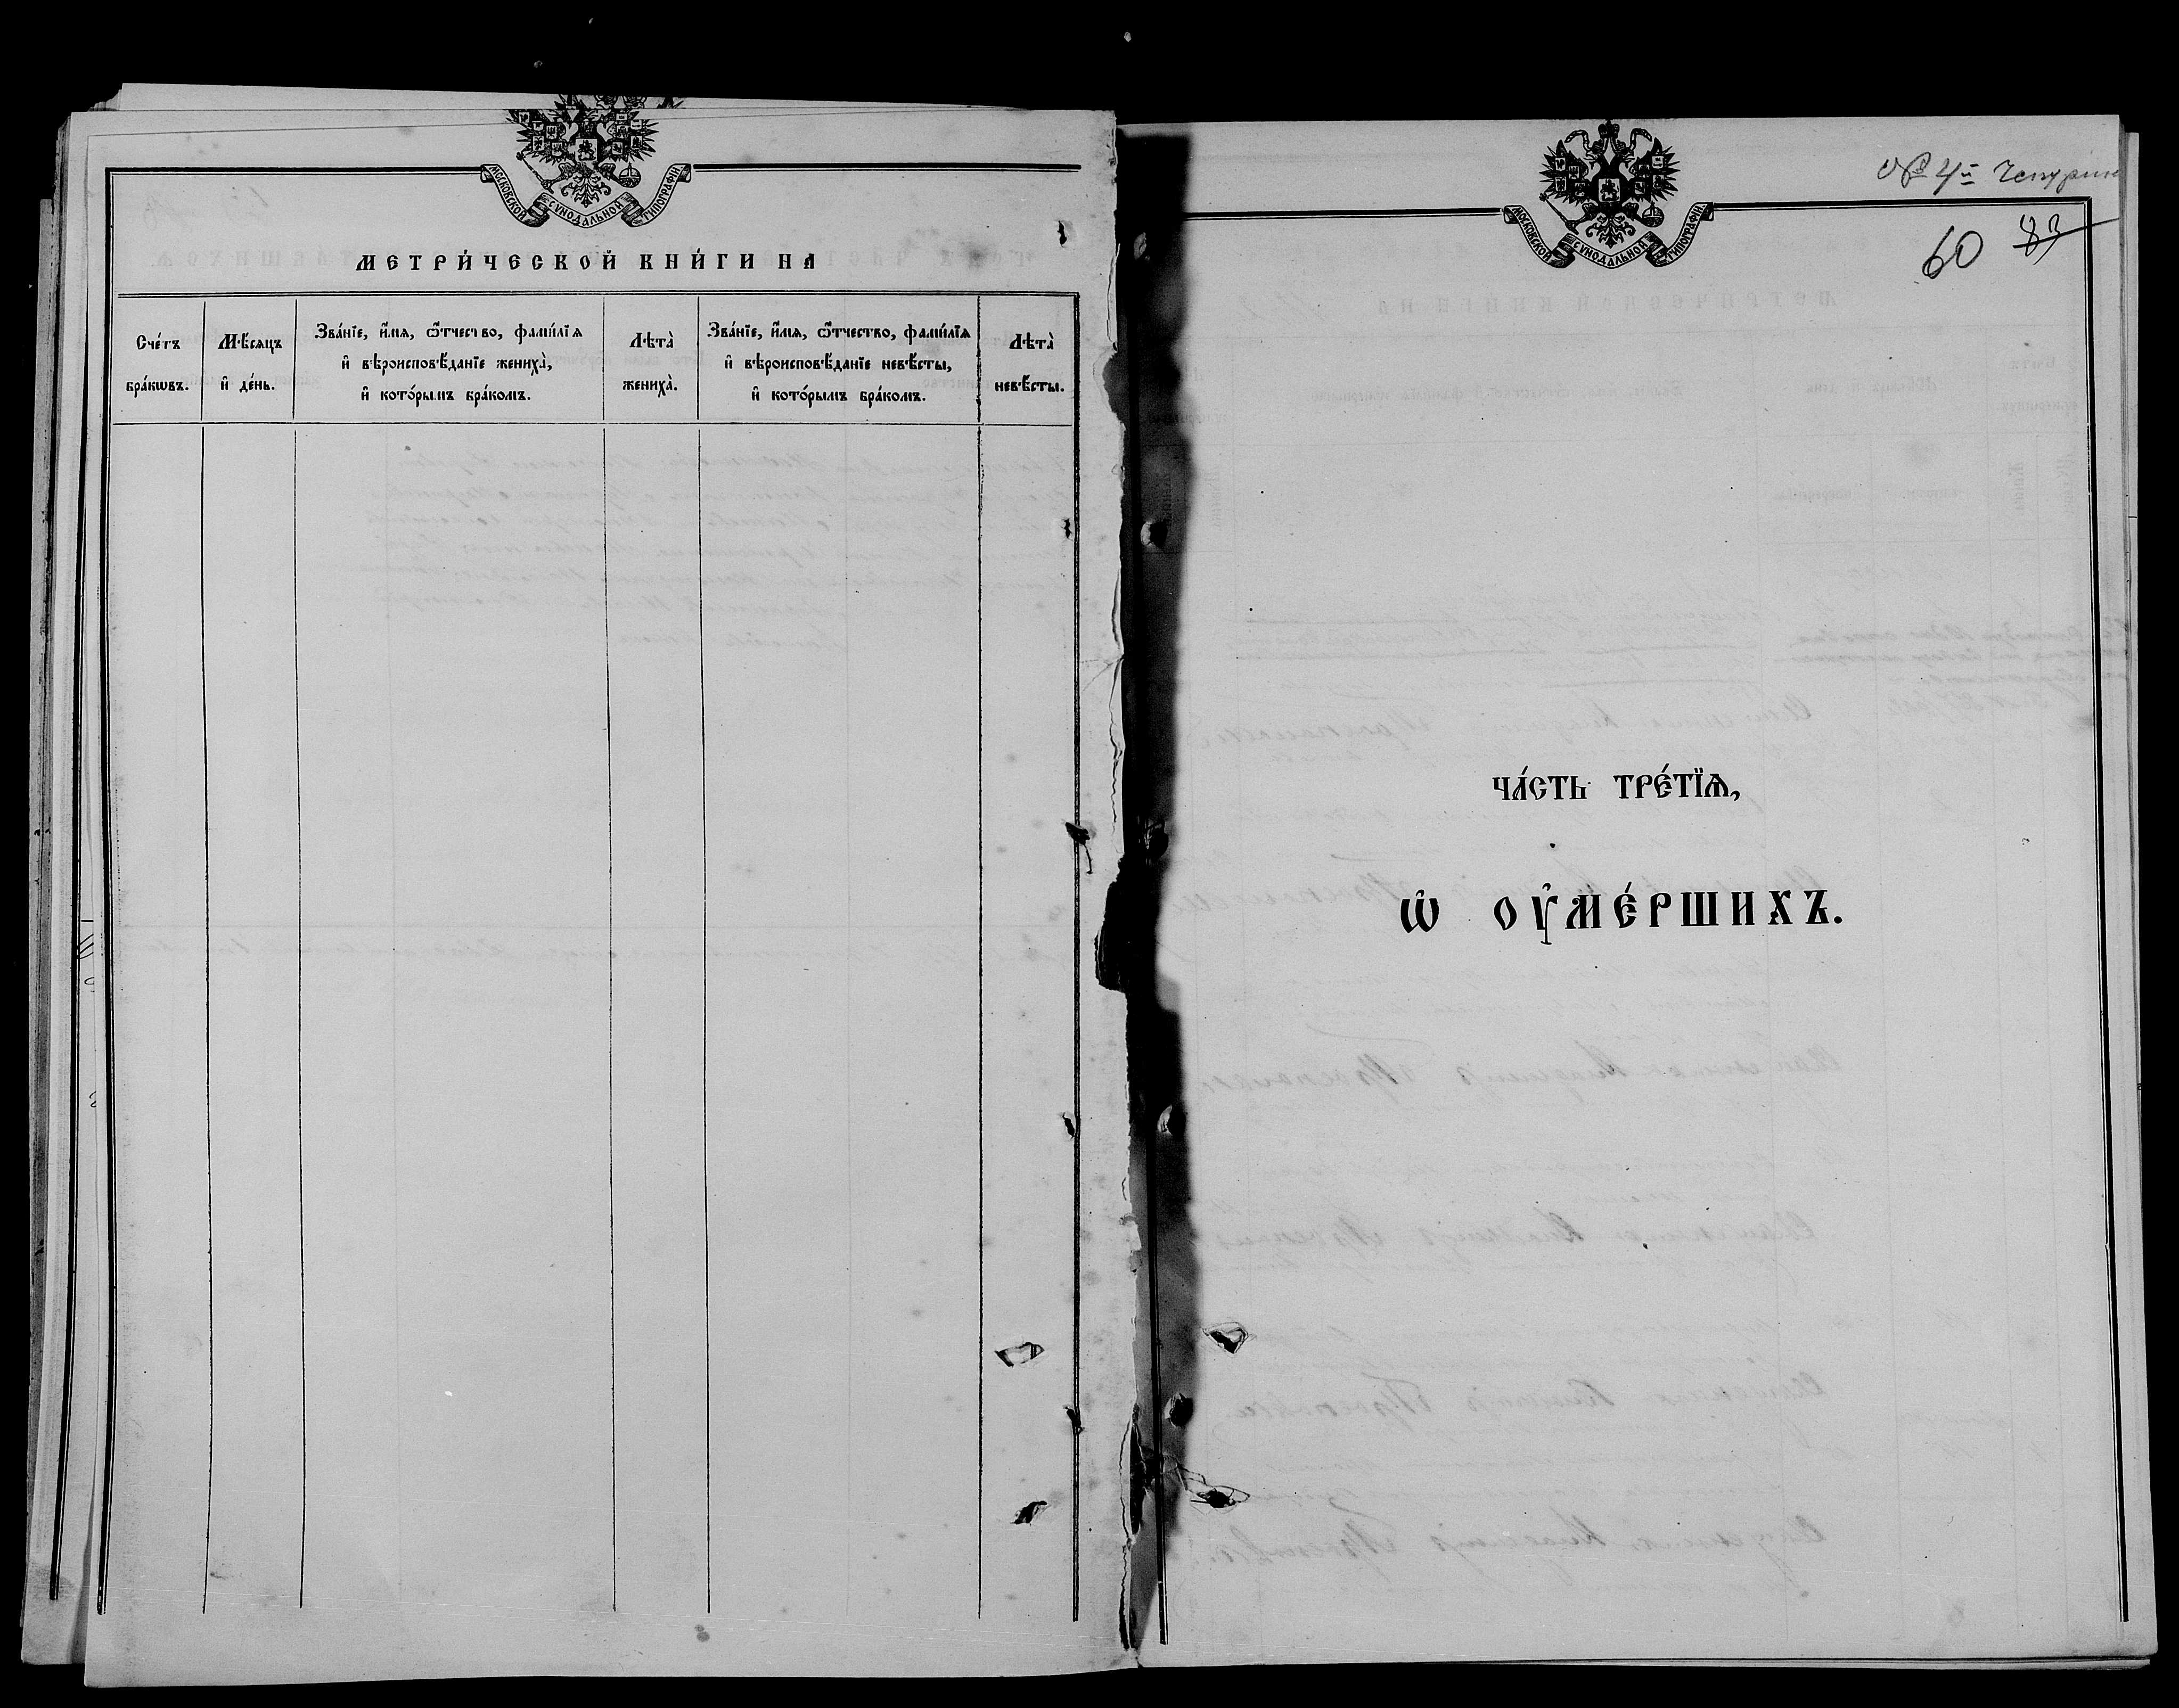 МОСКОВСКОЙ СѴНОДАЛЬНОЙ ТИПОГРАФІИ.
МЕТРИ́ЧЕСКОЙ КНИ́ГИ НА
Сче́тъ бра́кѡвъ.
Мѣ́сяцъ и҆ де́нь.
Зва́нїе, и҆́мѧ, ѻ҆́тчество, фами́лїѧ
и҆ вѣроисповѣ́данїе жениха̀,
и҆ кото́рымъ бра́комъ.
Лѣта̀ жениха̀.
Зва́нїе, и҆́мѧ, ѻ҆́тчество, фами́лїѧ
и҆ вѣроисповѣ́данїе невѣ́сты,
и҆ кото́рымъ бра́комъ.
Лѣта̀ невѣ́сты.
МОСКОВСКОЙ СѴНОДАЛЬНОЙ ТИПОГРАФІИ.
60 83
ЧА́СТЬ ТРЕ́ТЇѦ,
Ѡ҆ ОУ҆МЕ́РШИХЪ.